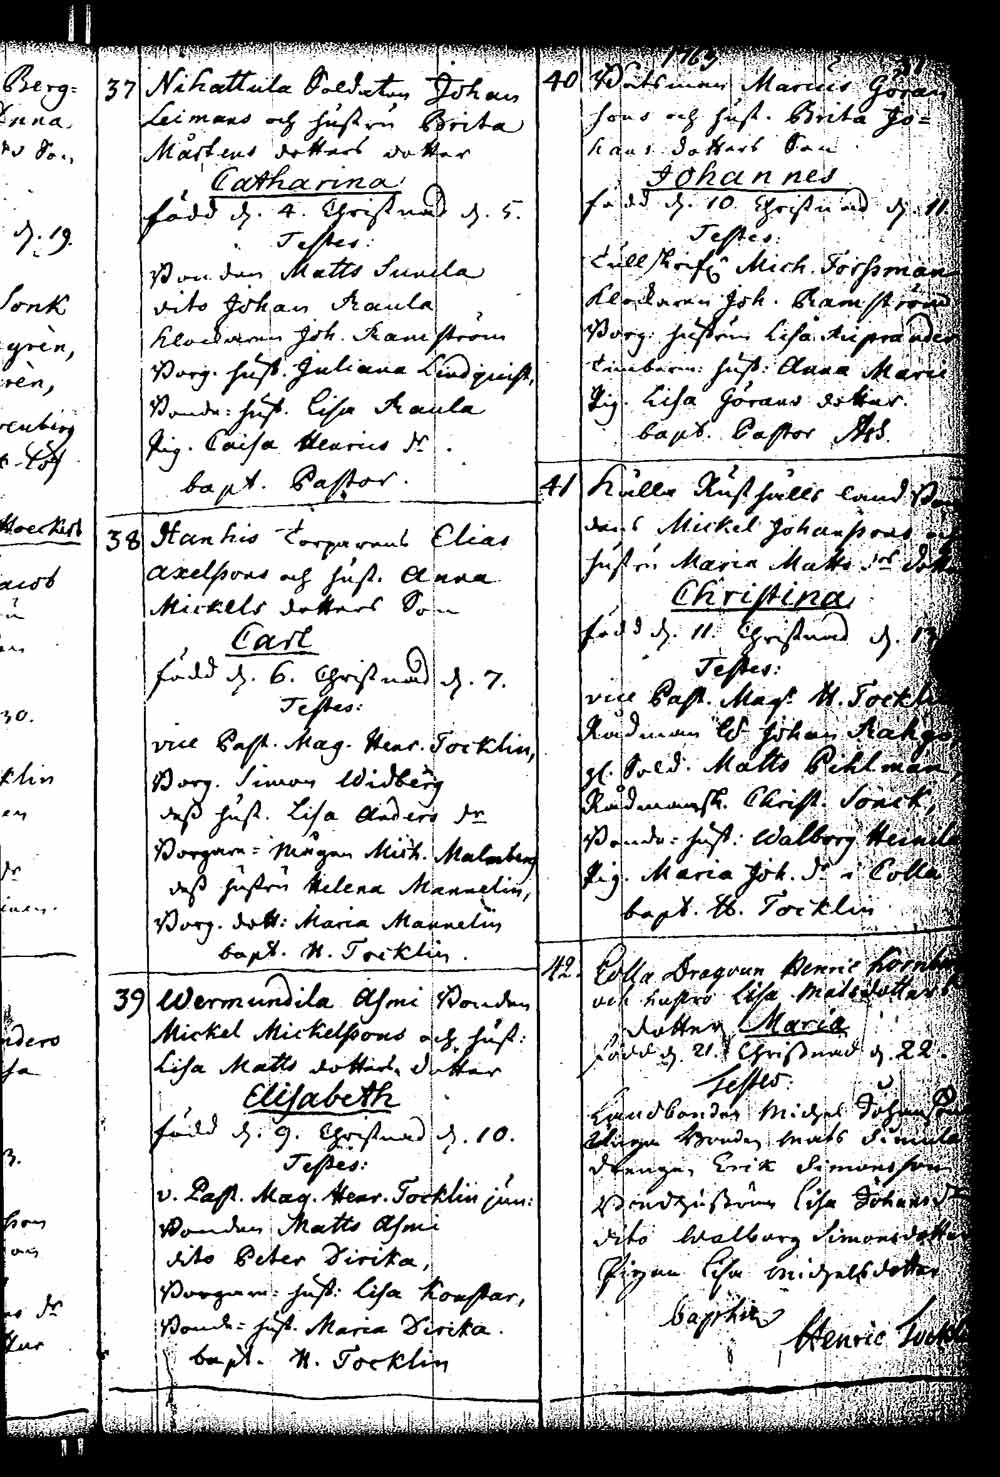 Berg=
Anna
Son
d. 19.
Sonk
grèn,
rèn,
renberg
Jacob
30.
klin
en
dr
nders
sa
3.
dr
37 Nihattula Soldaten Johan
Leimans och hustru Brita
Mårtens dotters dotter
Catharina
född d. 4. Christnad d. 5.
Testes:
Bonden Matts Sunila
dito Johan Raula
Klockaren Joh. Ramström
Borg. hust. Juliana Lindquist,
Bonde=hust. Lisa Raula
Pig. Caisa Henrics dr.
bapt. Pastor.
38 Hanhis Torparens Elias
Axelssons och hust. Anna
Mickels dotters Son
Carl
född d. 6. Christnad d. 7.
Testes:
vice Past. Mag. Henr. Tocklin,
Borg. Simon Widberg
dess hust. Lisa Anders dr
Borgare=mågen Mich. Malmberg
dess hustru Helena Mannelin,
Borg. dott: Maria Mannelin
bapt. H. Tocklin.
39 Wermundila Asmi Bonden
Mickel Mickelssons och hust:
Lisa Matts dotters dotter
Elisabeth
född d. 9. Christnad d. 10.
Testes:
v. Past. Mag. Henr. Tocklin jun:
Bonden Matts Asmi
dito Peter Dirika,
Borgare=hust: Lisa Konstar,
Bonde=hust. Maria Dirika.
bapt. H. Tocklin
1763
40 Båtsman Marcus Göran
sons och hust. Brita Jo=
hans dotters Son
Johannes
född d. 10. Christnad d. 11.
Testes:
Tullskrif. Mich. Forssman
Klockaren Joh. Ramström
Borg: hustru Lisa
hust: Anna Maria
Pig. Lisa Görans dotter.
bapt. Pastor
41 Källa Rusthålls land Bon
dens Mickel Johanssons och
hustru Maria Matts drs dotter
Christina
född d. 11. Christnad d. 13
Testes:
vice Past. Mag. H. Tocklin
Rådman Johan
gl. Sold. Matts Pihlman,
Rådmansh. Christ. Sonck,
Bonde=hust: Walborg
Pig. Maria Joh. dr i Colla
bapt. H. Tocklin
42. Colla Dragoun Henric
och hustro Lisa Matsdotters
dotter Maria
född d. 21. Christnad d. 22.
Testes:
Landbonden Michel Johansson
Unga Bonden Mats Simula
drengen Erik Simonsson
Bondhustrun Lisa Johans dr
dito Walborg Simonsdotter
Pigan Lisa Michelsdotter
baptiza
Henric Tockli